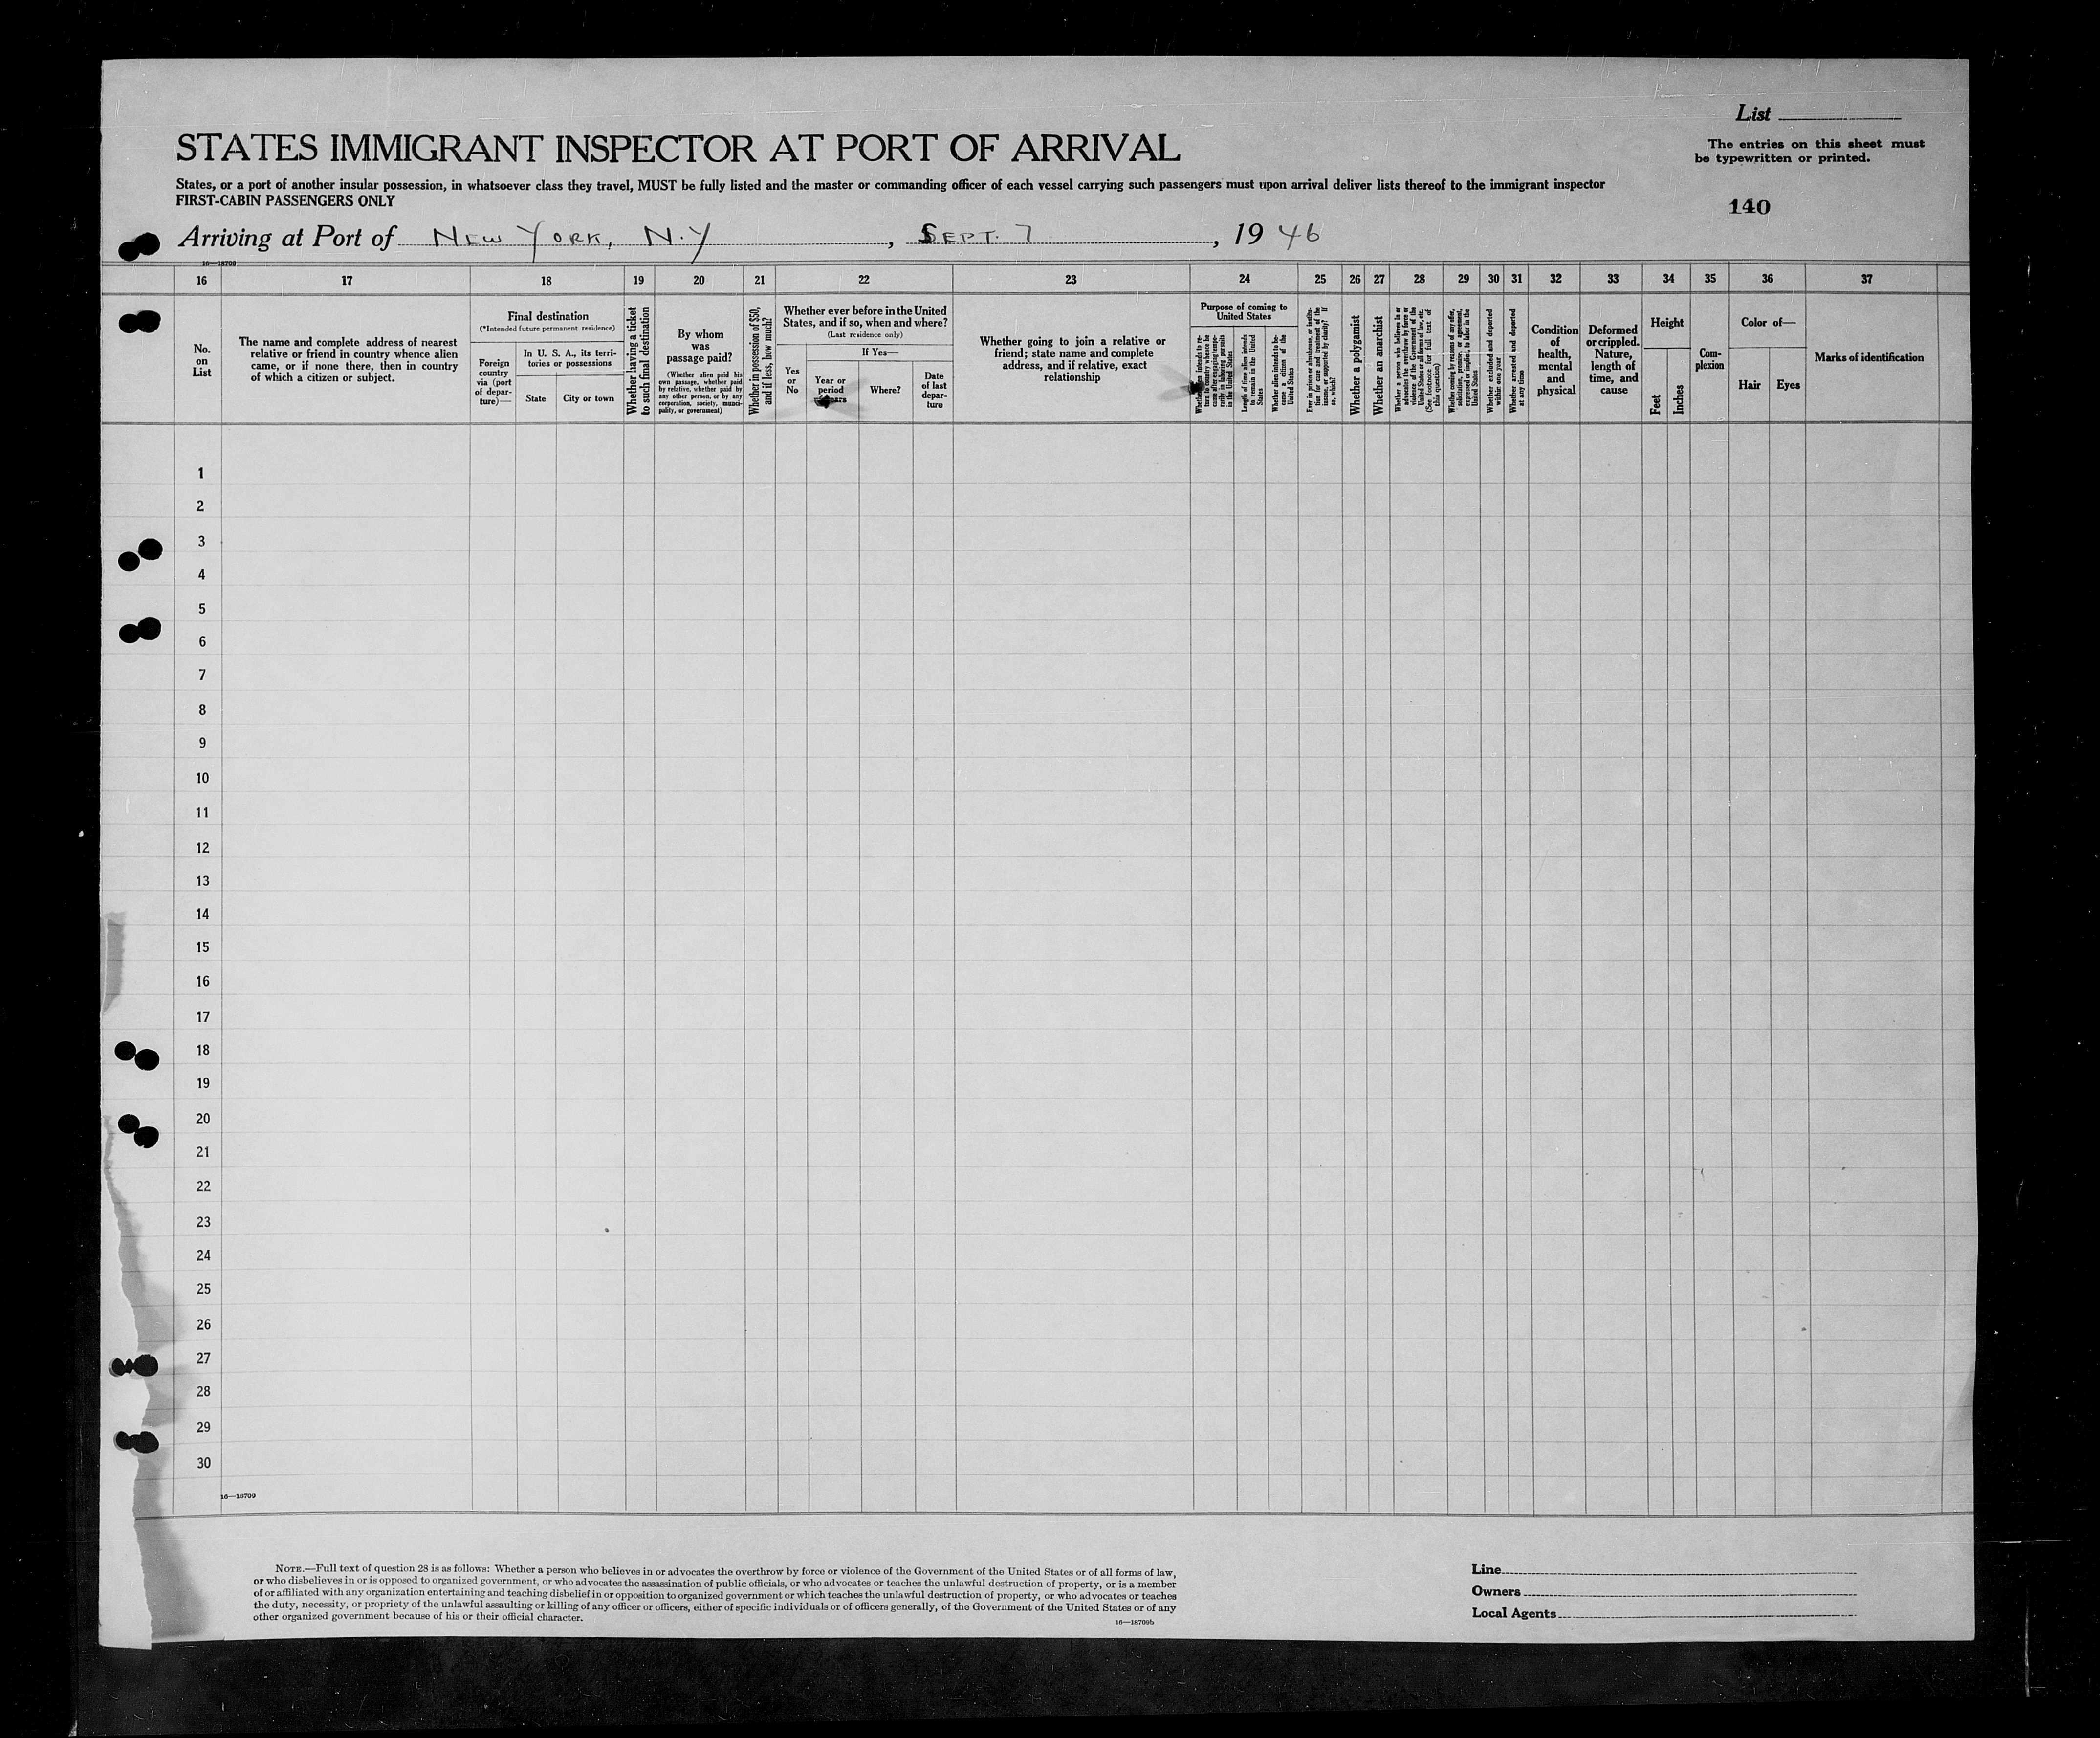 List
The entries on this sheet must
be typewritten or printed.
140
STATES IMMIGRANT INSPECTOR AT PORT OF ARRIVAL
States, or a port of another insular possession, in whatsoever class they travel, MUST be fully listed and the master or commanding officer of each vessel carrying such passengers must upon arrival deliver lists thereof to the immigrant inspector
FIRST-CABIN PASSENGERS ONLY
Arriving at Port of NEW YORK, N.Y , SEPT. 7 , 19 46
16—18709
16 17 18 19 20 21 22 23 24 25 26 27 28 29 30 31 32 33 34 35 36 37
No.
on
List
The name and complete address of nearest
relative or friend in country whence alien
came, or if none there, then in country
of which a citizen or subject.
Final destination
(*Intended future permanent residence)
Foreign
country
via (port
of depar-
ture)—
In U. S. A., its terri-
tories or possessions
State
City or town
Whether having a ticket
to such final destination
By whom
was
passage paid?
(Whether alien paid his
own passage, whether paid
by relative, whether paid by
any other person, or by any
corporation, society, munici-
pality, or government)
Whether in possession of $50,
and if less, how much?
Whether ever before in the United
States, and if so, when and where?
(Last residence only)
Yes
or
No
If Yes—
Year or
period
of years
Where?
Date
of last
depar-
ture
Whether going to join a relative or
friend; state name and complete
address, and if relative, exact
relationship
Purpose of coming to
United States
Whether alien intends to re-
turn to country whence he
came after engaging tempo-
rarily in laboring pursuits
in the United States
Length of time alien intends
to remain in the United
States
Whether alien intends to be-
come a citizen of the
United States
Ever in prison or almshouse, or institu-
tion for care and treatment of the
insane, or supported by charity? If
so, which?
Whether a polygamist
Whether an anarchist
Whether a person who believes in or
advocates the overthrow by force or
violence of the Government of the
United States or all forms of law, etc.
(See footnote for full text of
this question)
Whether coming by reasons of any offer,
solicitation, promise, or agreement,
expressed or implied, to labor in the
United States
Whether excluded and deported
within one year
Whether arrested and deported
at any time
Condition
of
health,
mental
and
physical
Deformed
or crippled.
Nature,
length of
time, and
cause
Height
Feet
Inches
Com-
plexion
Color of—
Hair
Eyes
Marks of identification
1
2
3
4
5
6
7
8
9
10
11
12
13
14
15
16
17
18
19
20
21
22
23
24
25
26
27
28
29
30
16—18709
NOTE.—Full text of question 28 is as follows: Whether a person who believes in or advocates the overthrow by force or violence of the Government of the United States or of all forms of law,
or who disbelieves in or is opposed to organized government, or who advocates the assassination of public officials, or who advocates or teaches the unlawful destruction of property, or is a member
of or affiliated with any organization entertaining and teaching disbelief in or opposition to organized government or which teaches the unlawful destruction of property, or who advocates or teaches
the duty, necessity, or propriety of the unlawful assaulting or killing of any officer or officers, either of specific individuals or of officers generally, of the Government of the United States or of any
other organized government because of his or their official character.
16—18709b
Line
Owners
Local Agents